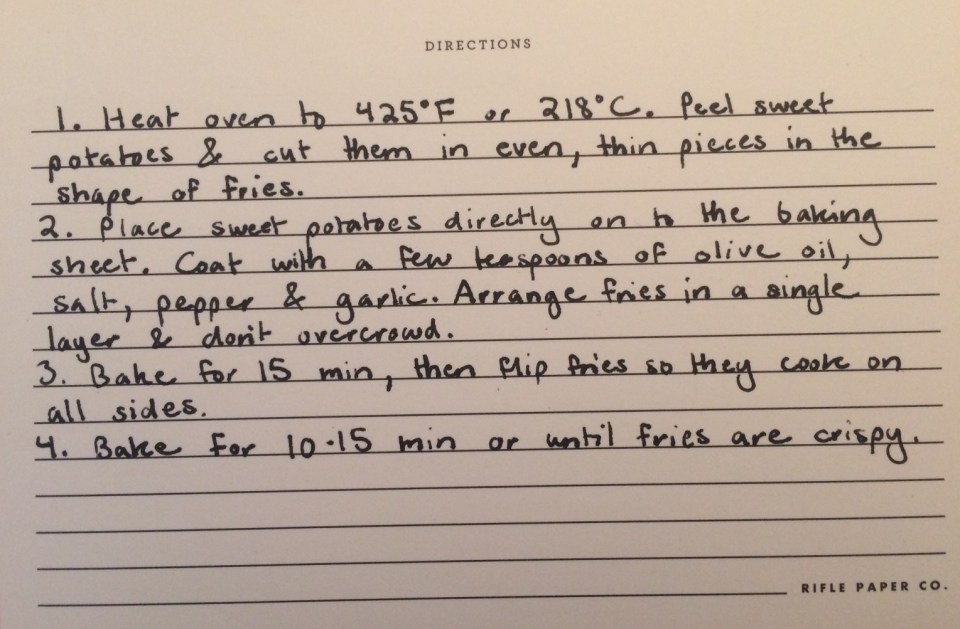 DIRECTIONS
1. Heat oven to 425°F or 218°C. Peel sweet
potatoes & cut them in even, thin pieces in the
shape of fries.
2. Place sweet potatoes directly on to the baking
sheet. Coat with a few teaspoons of olive oil,
salt, pepper & garlic. Arrange fries in a single
layer & don't overcrowd.
3. Bake for 15 min, then flip fries so they cook on
all sides.
4. Bake for 10-15 min or until fries are crispy.
RIFLE PAPER CO.